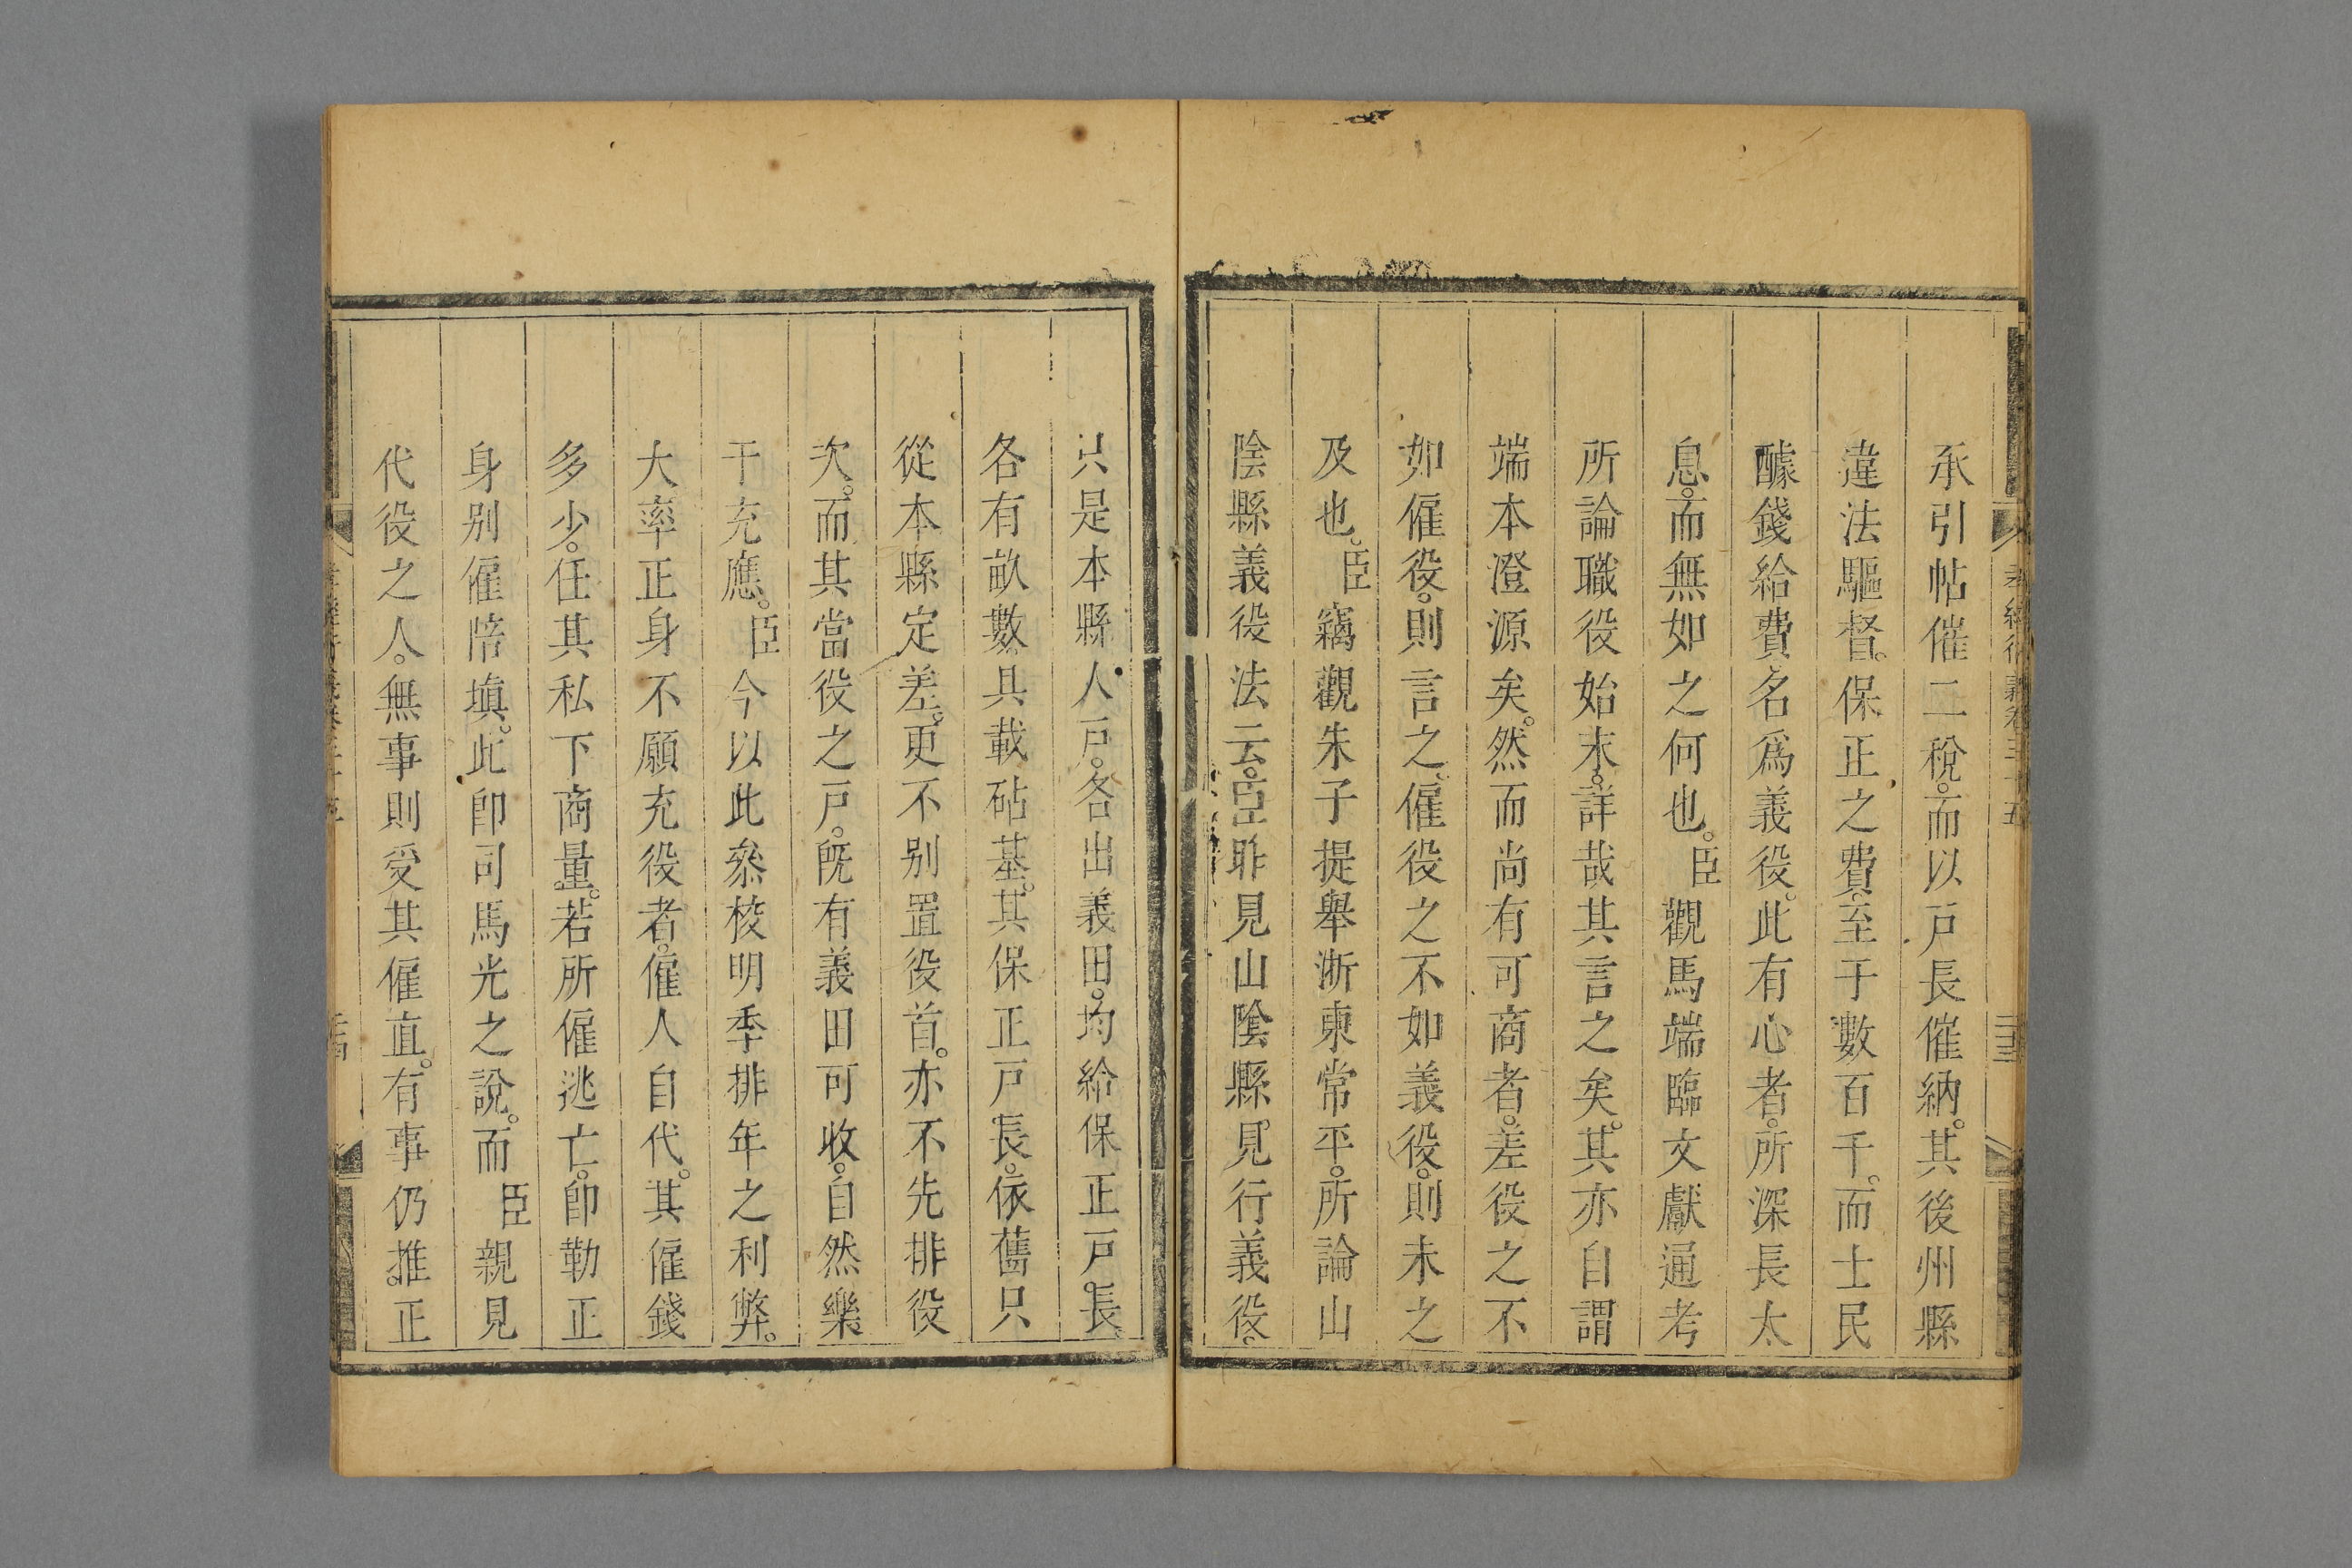 承引帖催二稅。而以戸長催納。其後州縣
違法驅督。保正之費。至于數百千。而士民
醵錢給費、名爲義役。此有心者。所深長太
息。而無如之何也。臣觀馬端臨文獻通考
所論職役始末。詳哉其言之矣。其亦自謂
端本澄源矣。然而尚有可商者。差役之不
如僱役。則言之、僱役之不如義役。則未之
及也。臣竊觀朱子提舉浙東常平。所論山
陰縣義役法云。臣昨見山陰縣見行義役。
只是本縣人戸。各出義田。均給保正戸長、
各有畝數、具載砧基。其保正戸長。依舊只
從本縣定差。更不别置役首。亦不先排役
次。而其當役之戸。旣有義田可收。自然樂
于充應。臣今以此叅校明季排年之利弊。
大率正身不願充役者。僱人自代。其僱錢
多少。任其私下商量。若所僱逃亡。卽勒正
身别僱賠塡。此卽司馬光之說。而臣親見
代役之人。無事則受其僱直。有事仍推。正